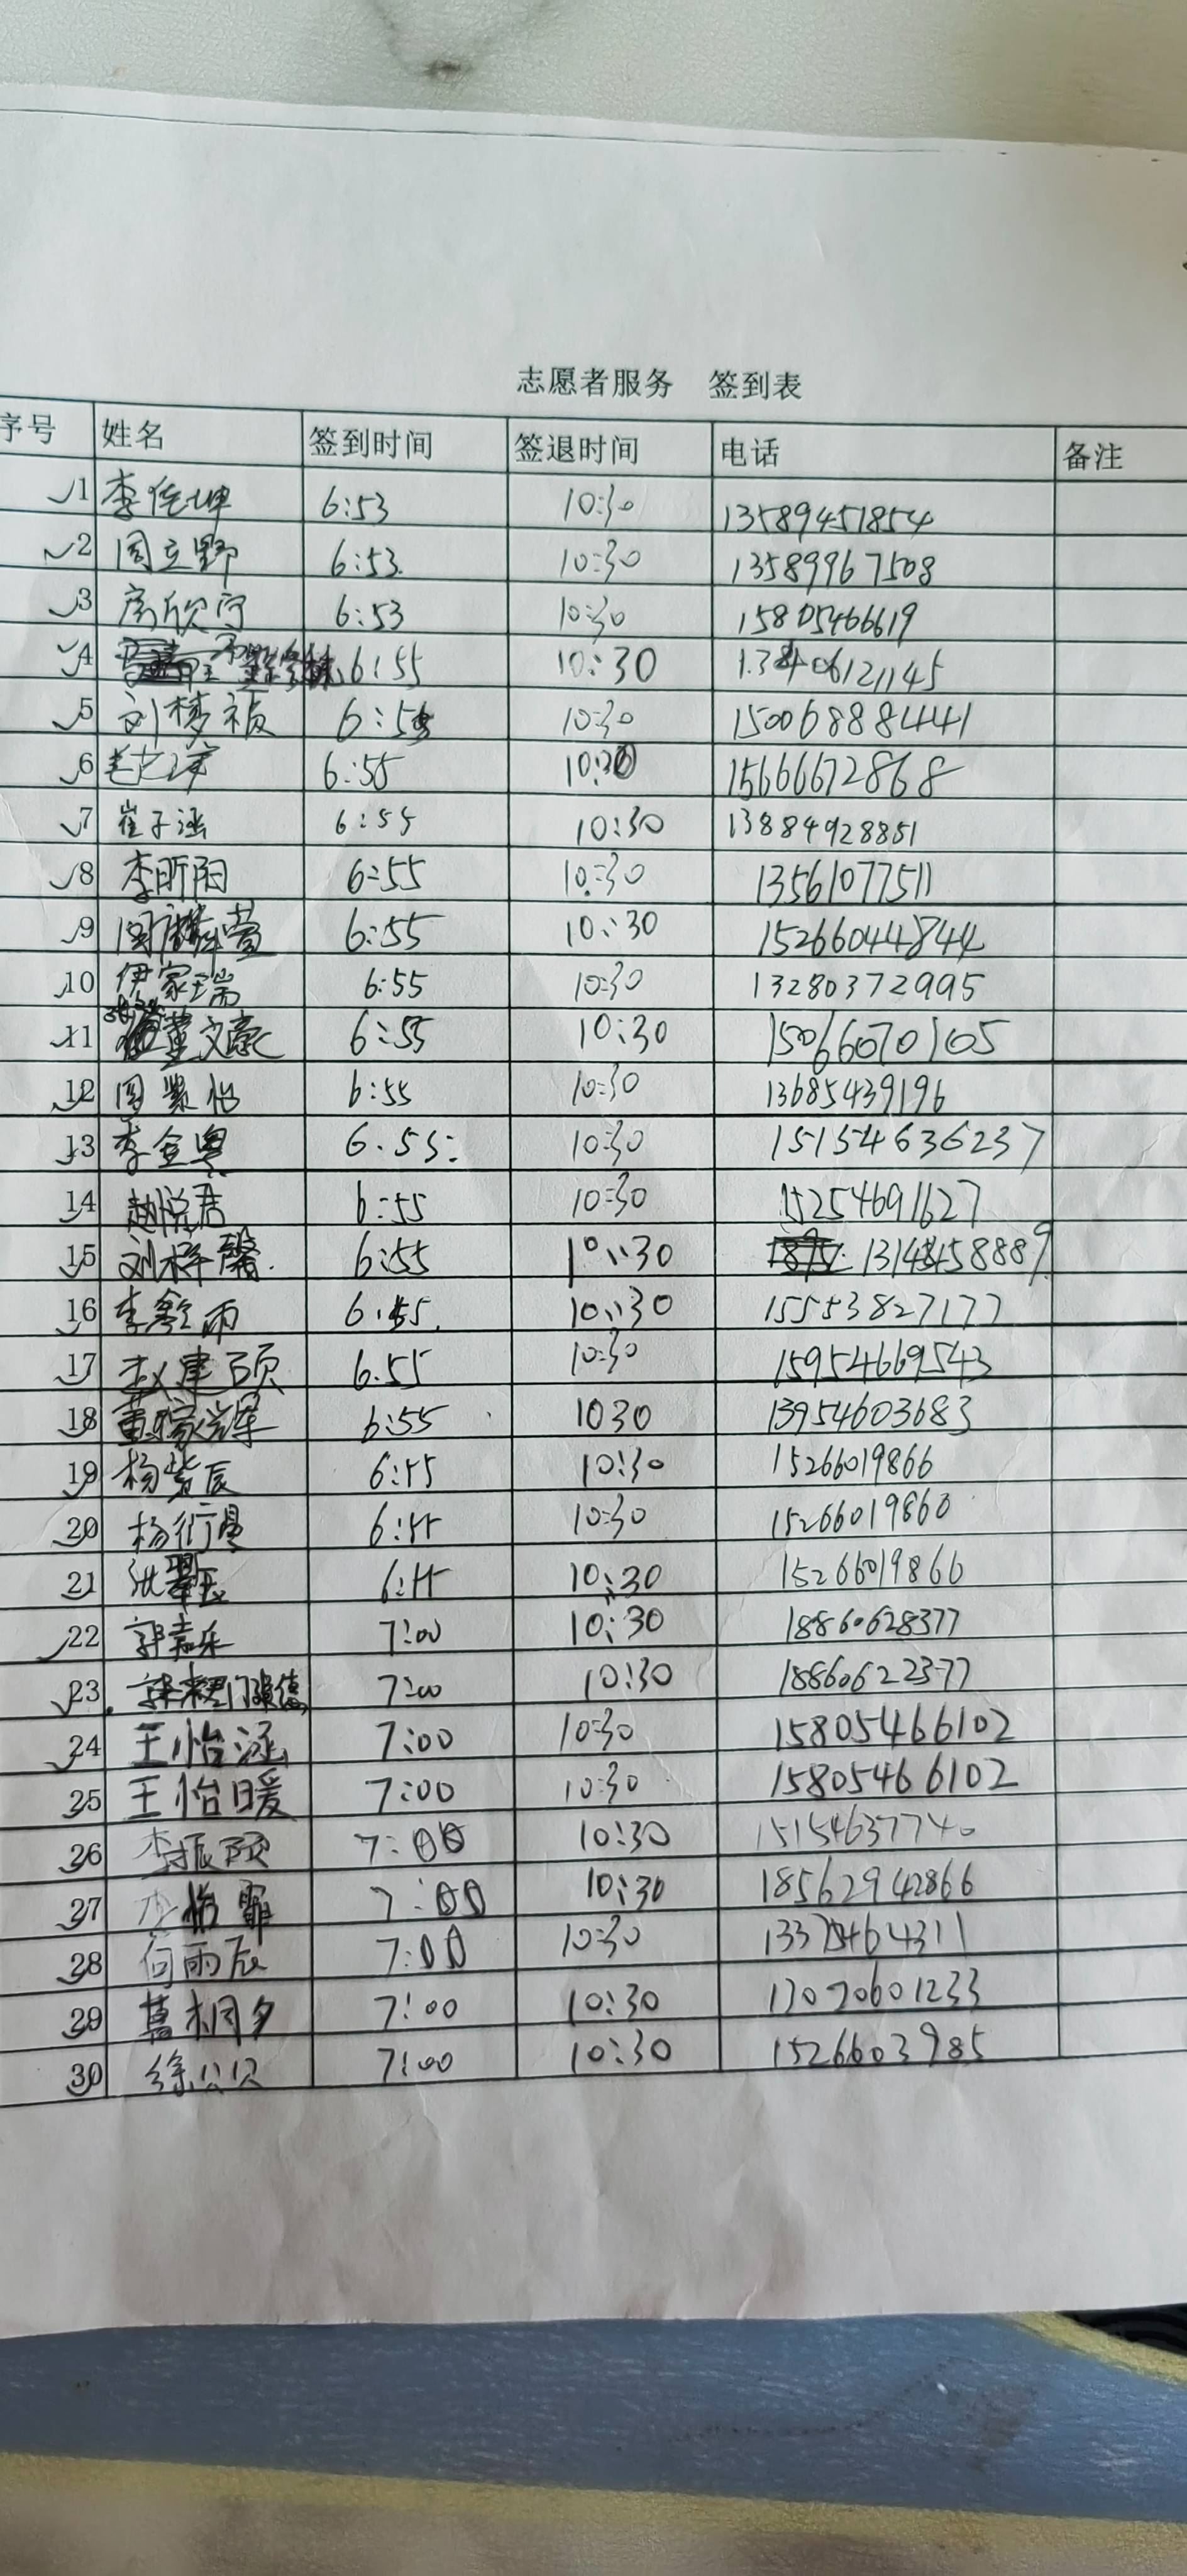 志愿者服务 签到表
序号 姓名 签到时间 签退时间 电话 备注
1 李佳坤 6:53 10:30 13589451854
2 周立野 6:53 10:30 13589967508
3 6:53 10:30 15805466619
4 6:55 10:30
5 刘梦禎 6:55 10:30 15006888441
6 6:55 10:30 15666672868
7 崔子涵 6:55 10:30 13884928851
8 李昕阳 6:55 10:30 13561077511
9 6:55 10:30 15266044844
10 伊家瑞 6:55 10:30 13280372995
11 董文豪 6:55 10:30 15066070105
12 周紫怡 6:55 10:30 13685439196
13 李金粤 6.55: 10:30 151154636237
14 赵悦君 6:55 10:30 15254691627
15 刘梓馨 6:55 10:30
16 6:55 10:30 15553827177
17 赵建硕 6.55 10:30 15954669543
18 6:55 1030 13954603683
19 杨紫辰 6:55 10:30 15266019866
20 6:55 10:30 15266019866
21 6:55 10:30 15266019866
22 郭嘉乐 7:00 10:30 18860628377
23 7:00 10:30 18860622377
24 王怡涵 7:00 10:30 15805466102
25 王怡暖 7:00 10:30 15805466102
26 李振硕 7:00 10:30 15154637740
27 7:00 10:30 18562942866
28 何雨辰 7:00 10:30 13375464311
29 葛桐夕 7:00 10:30 17070601233
30 7:00 10:30 1526603985